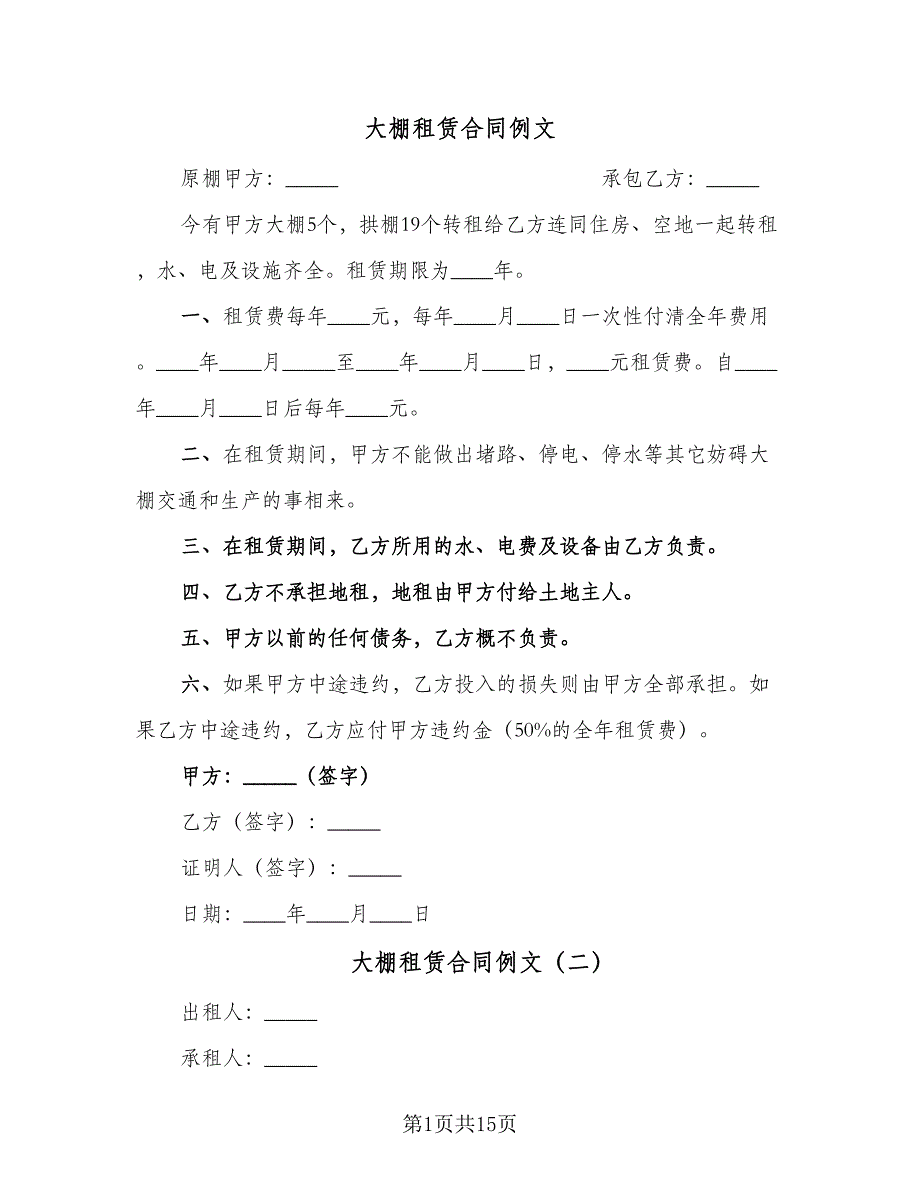 大棚租赁合同例文
原棚甲方：_____ 承包乙方：_____
今有甲方大棚5个，拱棚19个转租给乙方连同住房、空地一起转租
，水、电及设施齐全。租赁期限为____年。
一、租赁费每年____元，每年____月____日一次性付清全年费用
。____年____月_____至____年____月____日，____元租赁费。自____
年____月____日后每年____元。
二、在租赁期间，甲方不能做出堵路、停电、停水等其它妨碍大
棚交通和生产的事相来。
三、在租赁期间，乙方所用的水、电费及设备由乙方负责。
四、乙方不承担地租，地租由甲方付给土地主人。
五、甲方以前的任何债务，乙方概不负责。
六、如果甲方中途违约，乙方投入的损失则由甲方全部承担。如
果乙方中途违约，乙方应付甲方违约金（50%的全年租赁费）。
甲方：_____（签字）
乙方（签字）：_____
证明人（签字）：_____
日期：____年____月____日
大棚租赁合同例文（二）
出租人：_____
承租人：_____
第1页共15页